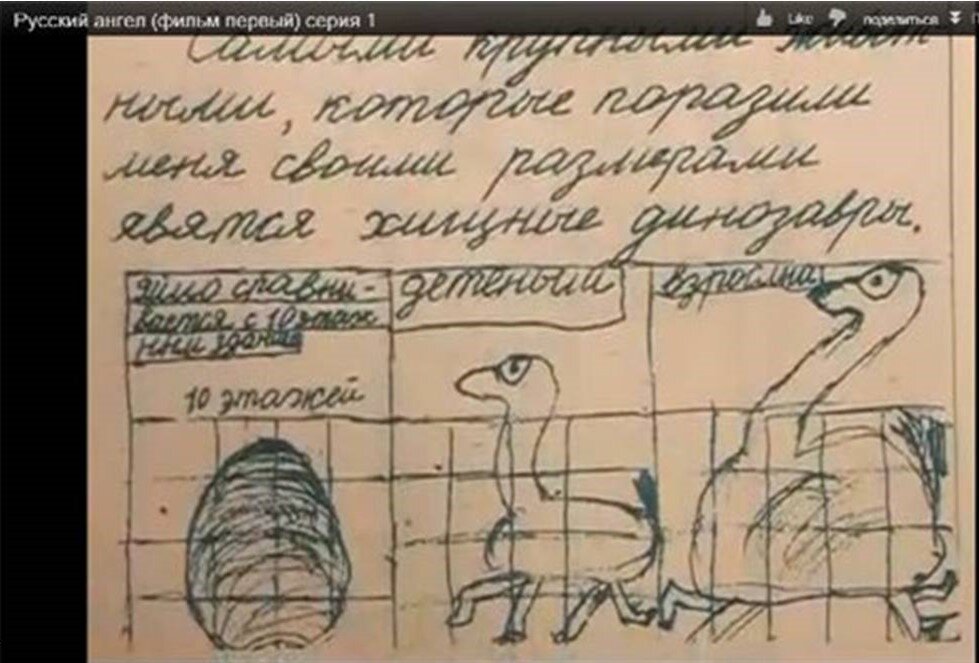 Русский ангел (фильм первый) серия 1
Like поделиться
Самыми крупными живот
ными, которые поразили
меня своими размерами
явятся хищные динозавры.
яйцо сравни-
вается с 10 этаж
ным
10 этажей
детеныш
взрослый